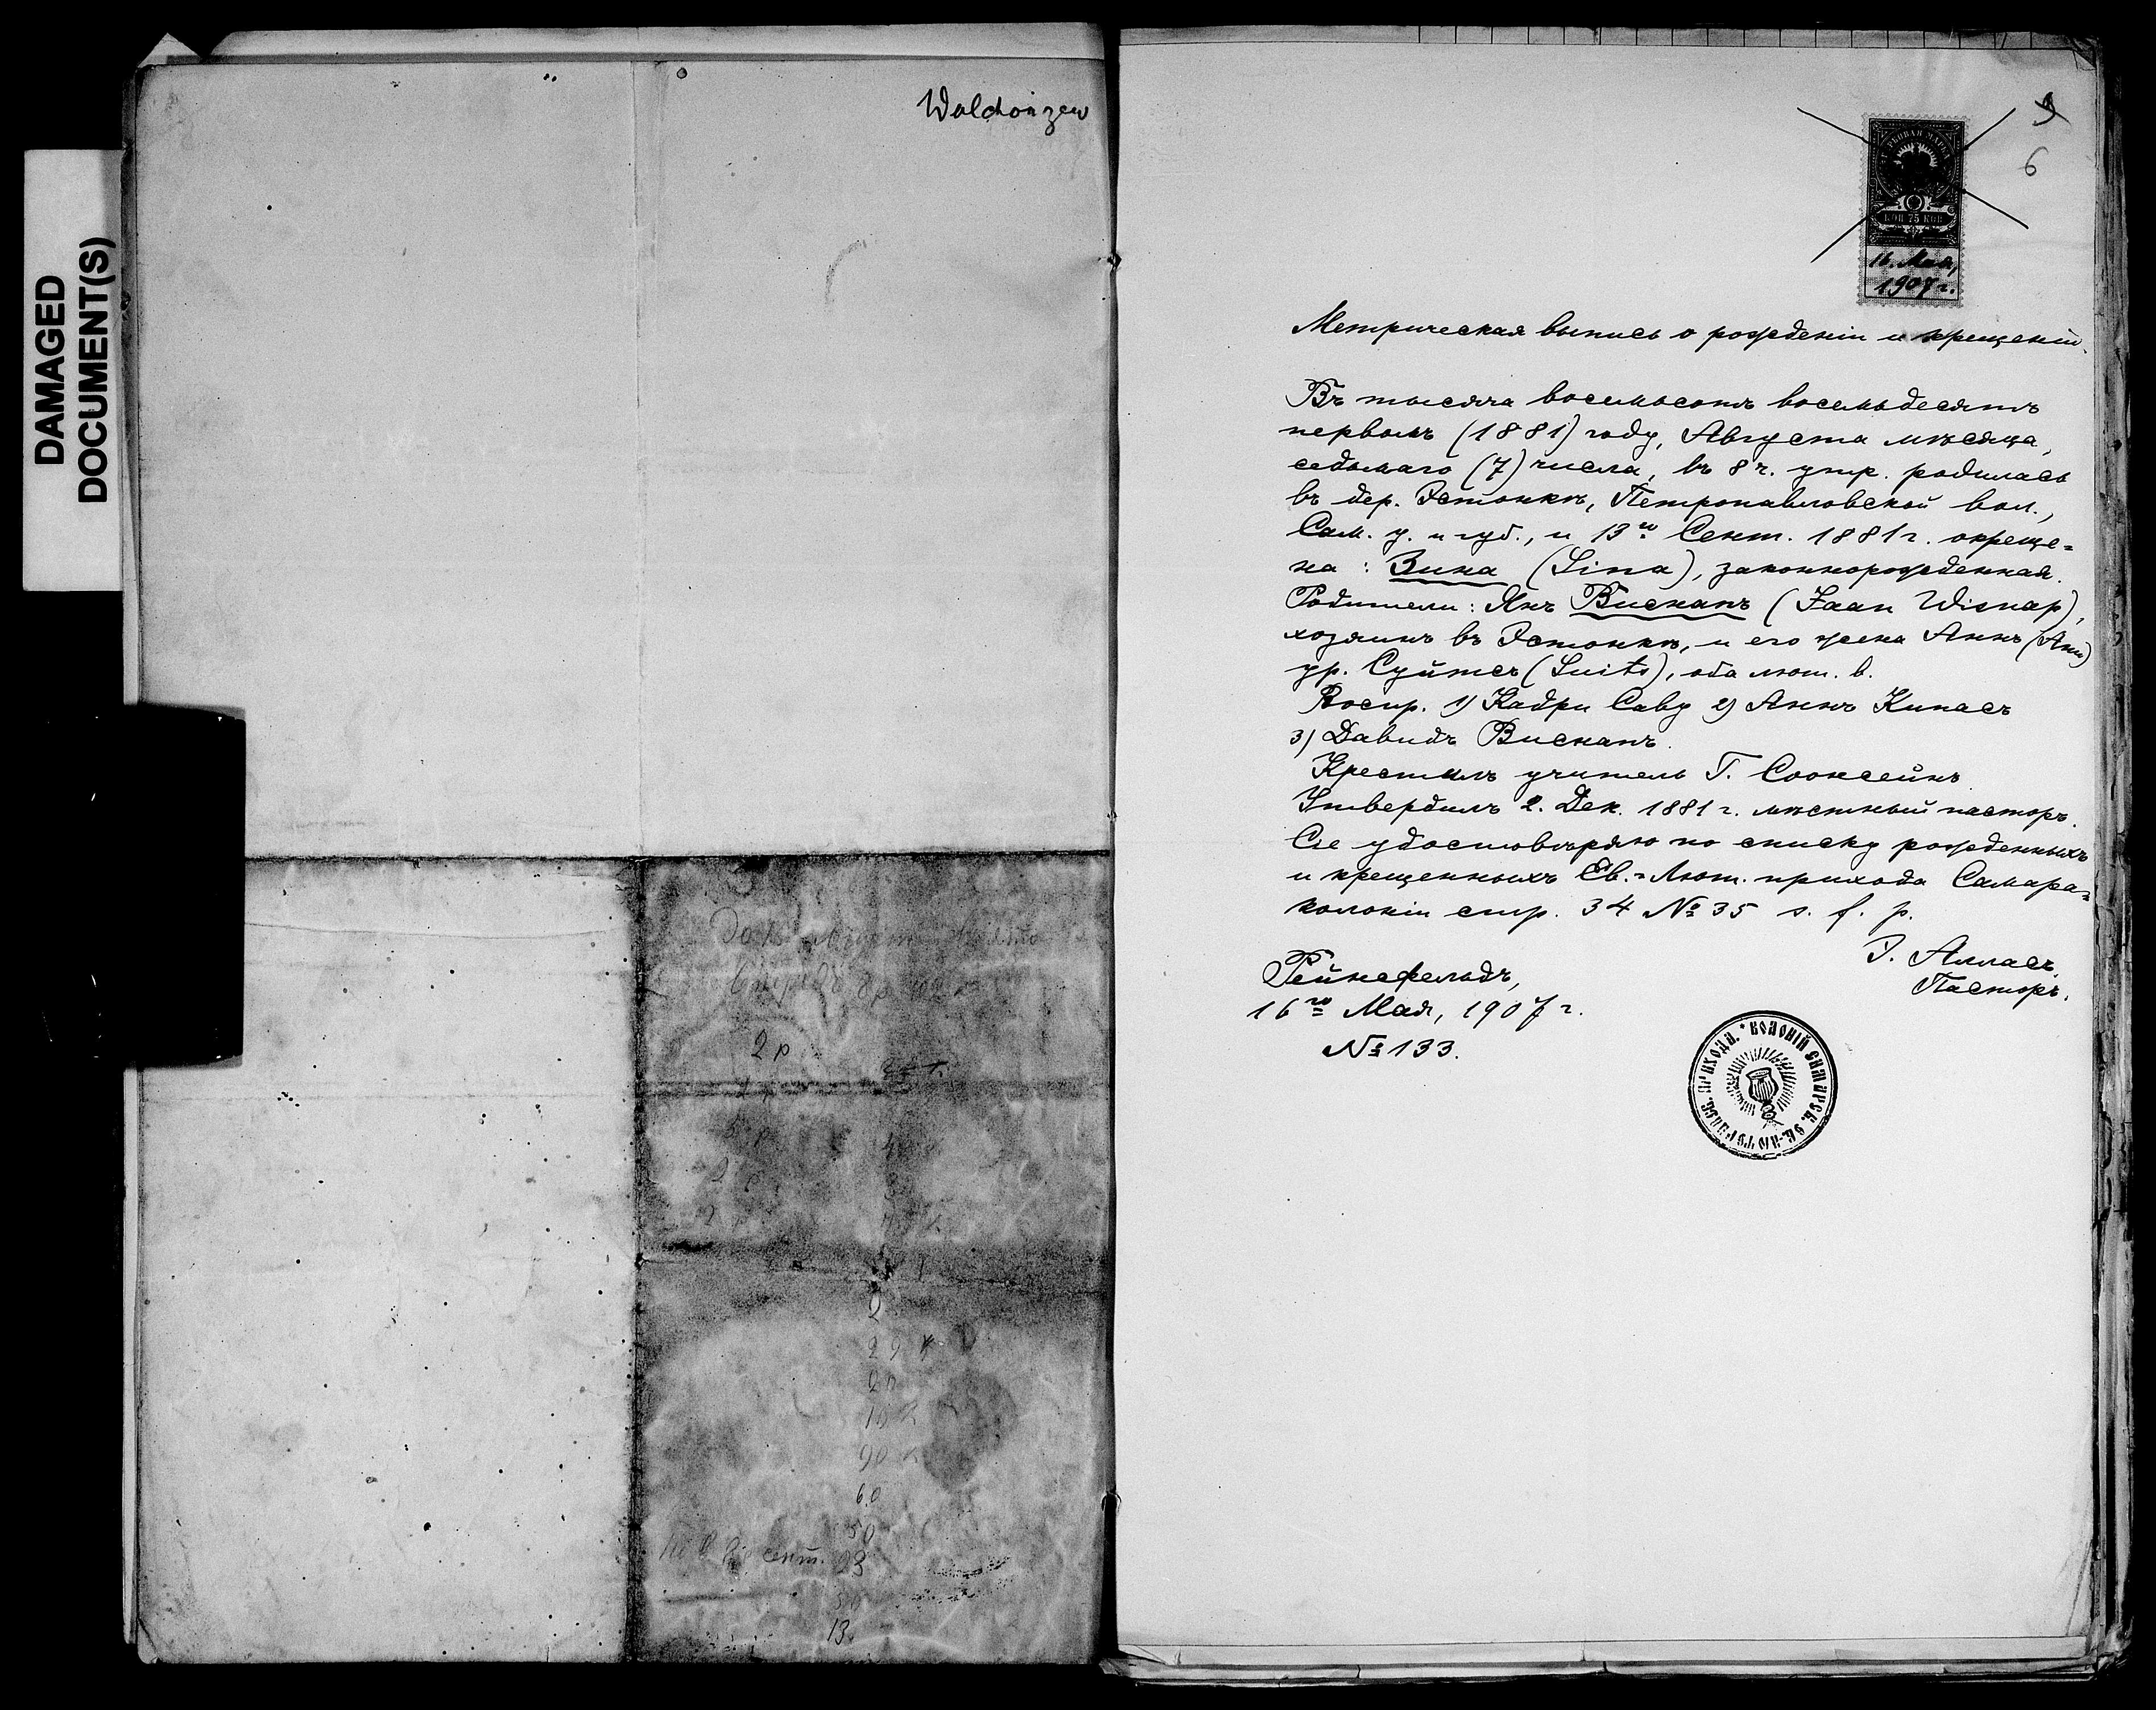 DAMAGED
DOCUMENT(S)
9
6
ГЕРБОВАЯ МАРКА
КОП 75 КОП
16. Мая,
1907 г.
Метрическая выпись о рожденіи и крещеніи.
Въ тысяча восемьсотъ восемьдесятъ
первомъ (1881) году, Августа мѣсяца,
седьмаго (7) числа, въ 8 ч. утр. родилась
въ дер. Эстонкѣ, Петропавловской вол.,
Сам. у. и губ., и 13го Сент. 1881 г. окреще=
на: Зина (Sina), законнорожденная.
Родители: Янъ Виснапъ (Jaan Wisnap),
хозяинъ въ Эстонкѣ, и его жена Аннъ (Ann)
ур. Суйтсъ (Suits), оба лют. в.
Воспр. 1) Кадри Саву 2) Аннъ Кипасъ
3) Давидъ Виснапъ.
Крестилъ учитель Г. Сооксейнъ
Утвердилъ 2. Дек. 1881 г. мѣстный пасторъ.
Сіе удостовѣряю по списку рожденныхъ
и крещенныхъ Ев.-Лют. прихода Самара=
колоніи стр. 34 №35 s. f. p.
Рейнсфельдъ,
16го Мая, 1907 г.
№ 133.
Алласъ
Пасторъ.
2 р
2
29 к
2 р
90 к
60
50
сент. 23
13